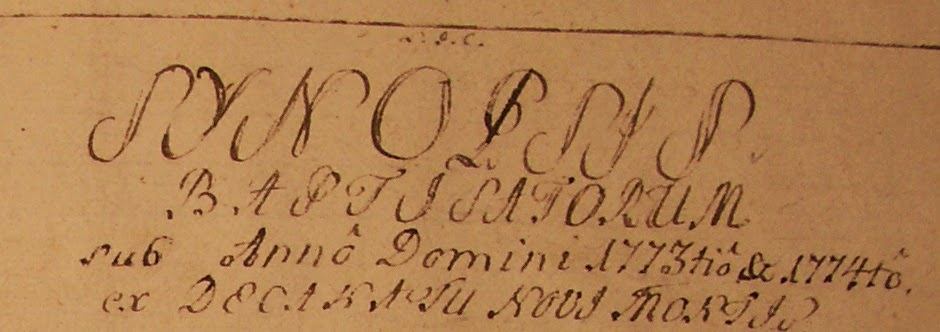 SYNOPSIS
BAPTISATORUM
sub Annô Domini 1773tiô & 1774tô.
ex DECANATU NOVI MONTIS